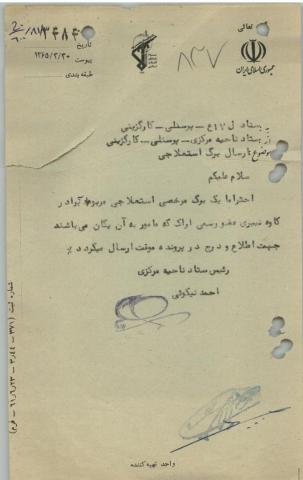 تعالی
جمهوری اسلامی ایران
۸۲۷
تاریخ ۱۳۶۵/۲/۳۰
پیوست
طبقه بندی
به ستاد ل ۱۷ ع - پرسنلی - کارگزینی
از ستاد ناحیه مرکزی - پرسنلی - کارگزینی
موضوع ارسال برگ استعلاجی
سلام علیکم
احتراما یک برگ مرخصی استعلاجی مربوط برادر
کاوه نبیری عضو رسمی اراک که مامور به آن یگان می باشند
جهت اطلاع و درج در پرونده موقت ارسال میگردد
رئیس ستاد ناحیه مرکزی
احمد نیکوئی
واحد تهیه کننده